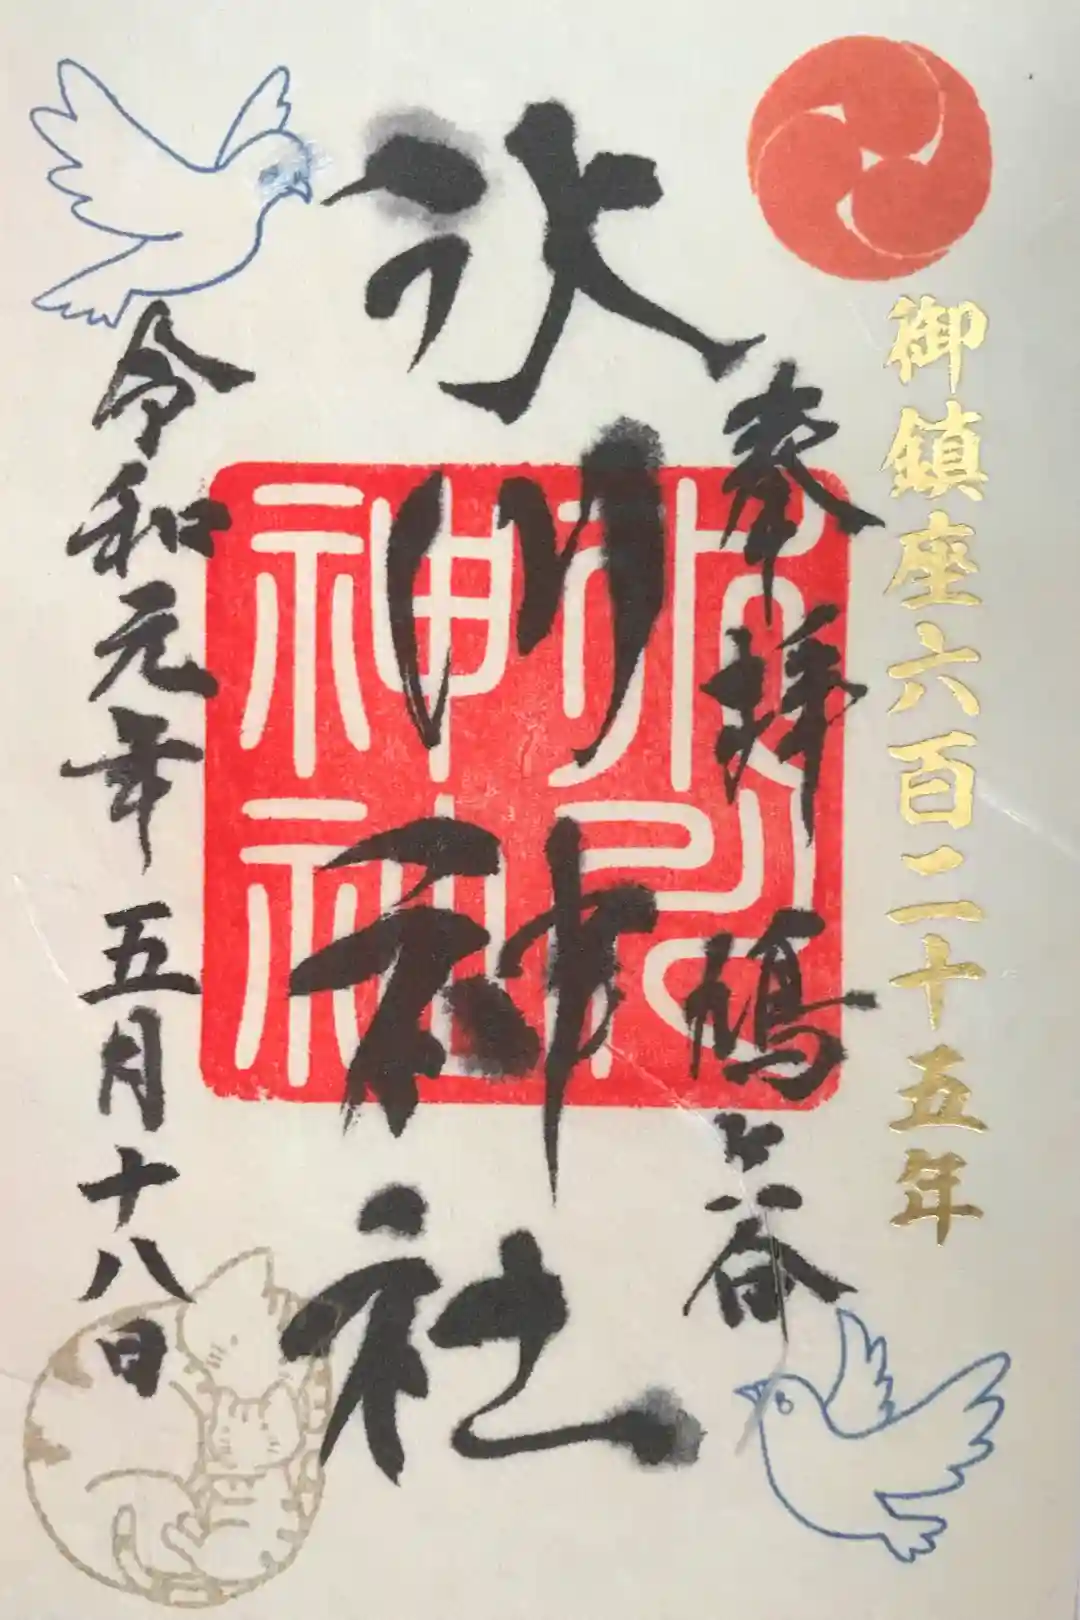 御鎮座六百二十五年
奉拝 鳩ヶ谷
氷川神社
氷川神社
令和元年 五月十八日